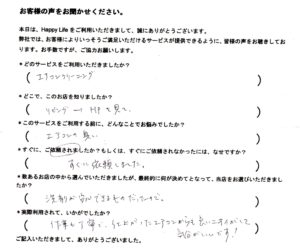 お客様の声をお聞かせください。
本日は、Happy Life をご利用いただきまして、誠にありがとうございます。
弊社では、お客様によりいっそうご満足いただけるサービスが提供できるように、皆様の声をお聴きしております。お手数ですが、ご協力お願いします。
*どのサービスをご利用いただきましたか？
(エアコンクリーニング)
*どこで、このお店を知りましたか？
(HPを見て。)
*このサービスをご利用する前に、どんなことでお悩みでしたか？
(エアコンの臭い)
*すぐに、ご依頼されましたか？もしくは、すぐにご依頼されなかったには、なぜですか？
(すぐに依頼しました。)
*数あるお店の中から選んでいただきましたが、最終的に何が決めてとなって、当店をお選びいただきましたか？
(洗剤が)
*実際利用されて、いかがでしたか？
(仕事も丁寧で、エアコンからも良いニオイがして気分がいいです！)
ご記入いただきまして、ありがとうございました。